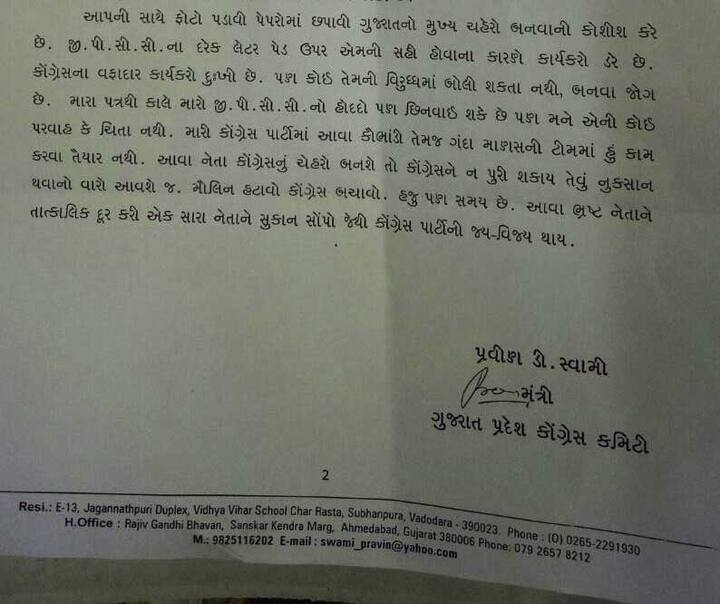 આપની સાથે ફોટો પડાવી પેપરોમાં છપાવી ગુજરાતનો મુખ્ય ચહેરો બનવાની કોશીશ કરે
છે. જી.પી.સી.સી.ના દરેક લેટર પેડ ઉપર એમની સહી હોવાના કારણે કાર્યકરો ડરે છે.
કોંગ્રેસના વફાદાર કાર્યકરો દુઃખી છે. પણ કોઈ તેમની વિરુધ્ધમાં બોલી શકતા નથી, બનવા જોગ
છે. મારા પત્રથી કાલે મારો જી.પી.સી.સી.નો હોદદો પણ છિનવાઈ શકે છે પણ મને એની કોઈ
પરવાહ કે ચિતા નથી. મારી કોંગ્રેસ પાર્ટીમાં આવા કૌભાંડી તેમજ ગંદા માણસની ટીમમાં હું કામ
કરવા તૈયાર નથી. આવા નેતા કોંગ્રેસનું ચહેરો બનશે તો કોંગ્રેસને ન પુરી શકાય તેવું નુકસાન
થવાનો વારો આવશે જ. મૌલિન હટાવો કોંગ્રેસ બચાવો. હજુ પણ સમય છે. આવા ભ્રષ્ટ નેતાને
તાત્કાલિક દૂર કરી એક સારા નેતાને સુકાન સોંપો જેથી કોંગ્રેસ પાર્ટીની જય-વિજય થાય.
પ્રવીણ ડી.સ્વામી
મંત્રી
ગુજરાત પ્રદેશ કોંગ્રેસ કમિટી
2
Resi.: E-13, Jagannathpuri Duplex, Vidhya Vihar School Char Rasta, Subhanpura, Vadodara - 390023. Phone : (O) 0265-2291930
H.Office : Rajiv Gandhi Bhavan, Sanskar Kendra Marg, Ahmedabad, Gujarat 380006 Phone: 079 2657 8212
M.: 9825116202 E-mail : swami_pravin@yahoo.com